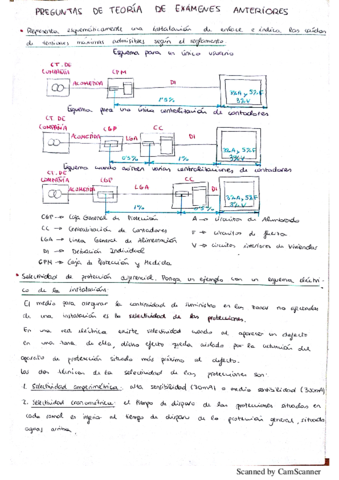 PREGUNTAS DE TEORÍA DE EXÁMENES ANTERIORES
• Representa esquemáticamente una instalación de enlace e indica las caídas
de tensiones máximas admisibles según el reglamento
Esquema para un único usuario
CT. DE
COMPAÑIA
CPM
ACOMETIDA
DI
1'5%
Esquema para una única centralización de contadores
CT. DE
COMPAÑIA
LGP
CC
ACOMETIDA
LGA
DI
0'5%
1%
Esquema cuando existen varias centralizaciones de contadores
CT. DE
COMPAÑIA
CGP
CC
ACOMETIDA
LGA
DI
1%
0'5%
CGP → Caja General de Protección
A → Circuitos de Alumbrado
CC → Centralización de Contadores
F → Circuitos de fuerza
LGA → Línea General de Alimentación
V → Circuitos interiores de Viviendas
DI → Derivación Individual
CPM → Caja de Protección y Medida
• Selectividad de protección diferencial. Ponga un ejemplo con un esquema eléctri-
co de la instalación
El medio para asegurar la continuidad de suministro en los tramos no afectados
de una instalación es la selectividad de las protecciones.
En una red eléctrica existe selectividad cuando al aparecer un defecto
en una zona de ella, dicho defecto queda aislado por la actuación del
aparato de protección situado más próximo al defecto.
Las dos técnicas de la selectividad de las protecciones son:
1. Selectividad amperimétrica: alta sensibilidad (30mA) o media sensibilidad (300mA)
2. Selectividad cronométrica: el tiempo de disparo de las protecciones situadas en
cada ramal es inferior al tiempo de disparo de la protección general, situada
aguas arriba.
Scanned by CamScanner